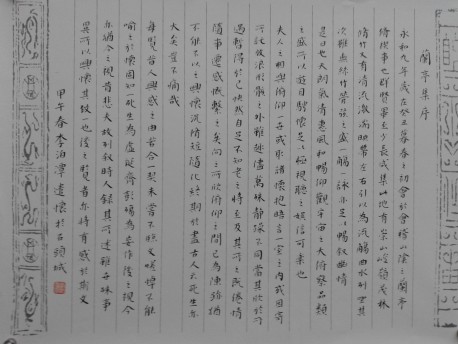 蘭亭集序
永和九年歲在癸丑暮春之初會于會稽山陰之蘭亭
修禊事也群賢畢至少長咸集此地有崇山峻嶺茂林
修竹又有清流激湍映帶左右引以為流觴曲水列坐其
次雖無絲竹管弦之盛一觴一詠亦足以暢敘幽情
是日也天朗氣清惠風和暢仰觀宇宙之大俯察品類
之盛所以遊目騁懷足以極視聽之娛信可樂也
夫人之相與俯仰一世或取諸懷抱晤言一室之內或因寄
所託放浪形骸之外雖趣舍萬殊靜躁不同當其欣於所
遇暫得於己快然自足不知老之將至及其所之既倦情
隨事遷感慨繫之矣向之所欣俯仰之間已為陳跡猶
不能不以之興懷況修短隨化終期於盡古人云死生亦
大矣豈不痛哉
每覽昔人興感之由若合一契未嘗不臨文嗟悼不能
喻之於懷固知一死生為虛誕齊彭殤為妄作後之視今
亦猶今之視昔悲夫故列敘時人錄其所述雖世殊事
異所以興懷其致一也後之覽者亦將有感於斯文
甲午春李泊潭遣懷於石頭城